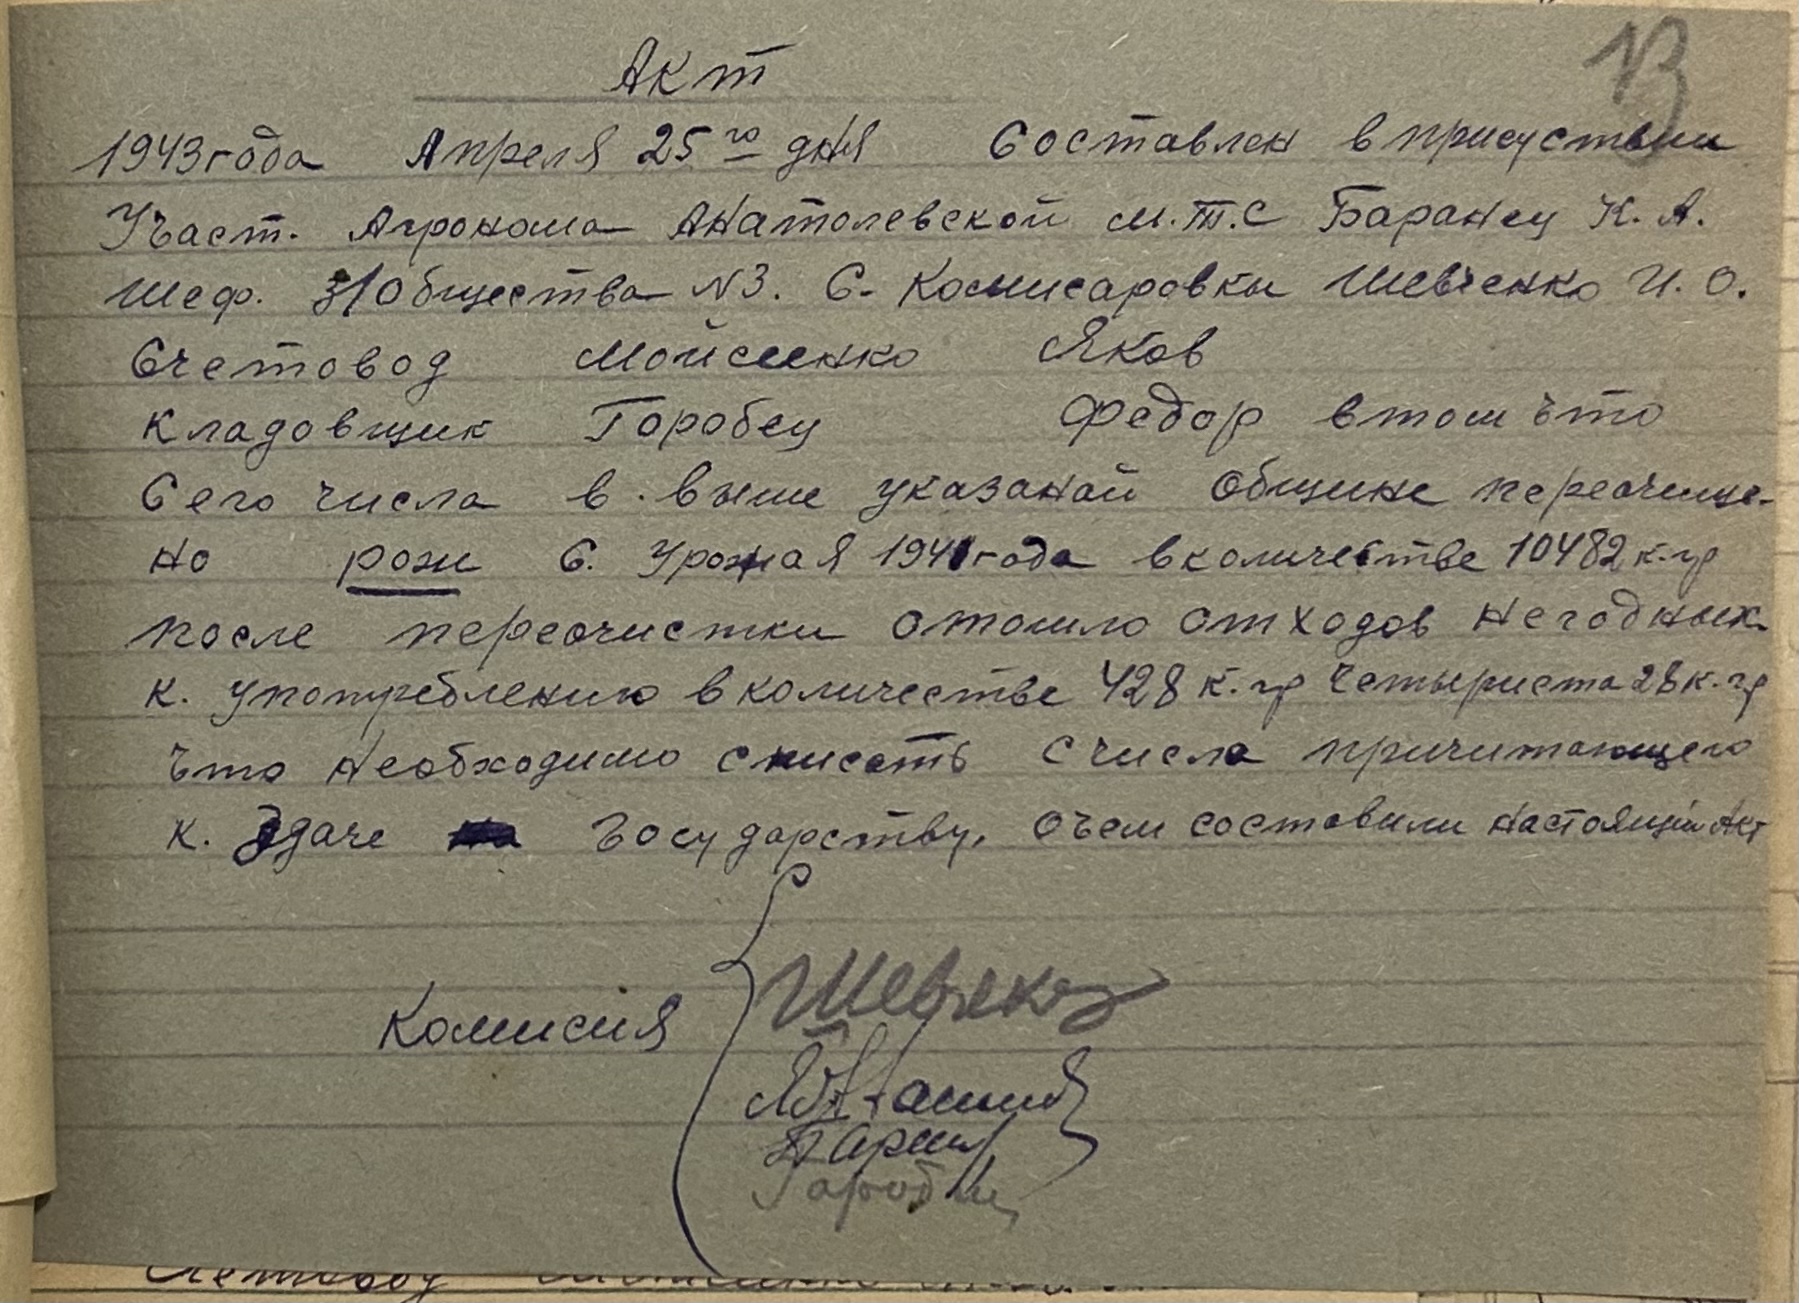 13
Акт
1943 года Апреля 25го дня Составлен в присуствии
Участ. Агронома Анатолевской М.Т.С Баранец К. А.
Шеф. з/Общества №3. С. Комисаровки Шевченко И. О.
Счетовод Мойсиенко Яков
кладовщик Горобец Федор в том что
Сего числа в. выше указаной Общине переочище-
но рож С. Урожая 1941 года в количестве 10482 к.гр
после переочистки отошло отходов негодных
к. употреблению в количестве 428 к.гр Четыриста 28 к.гр
что необходимо списать с числа причитающего
к. Здаче Государству. Очем составили настоящий Акт
Комисия
Шевченко
Горобец
Счетовод